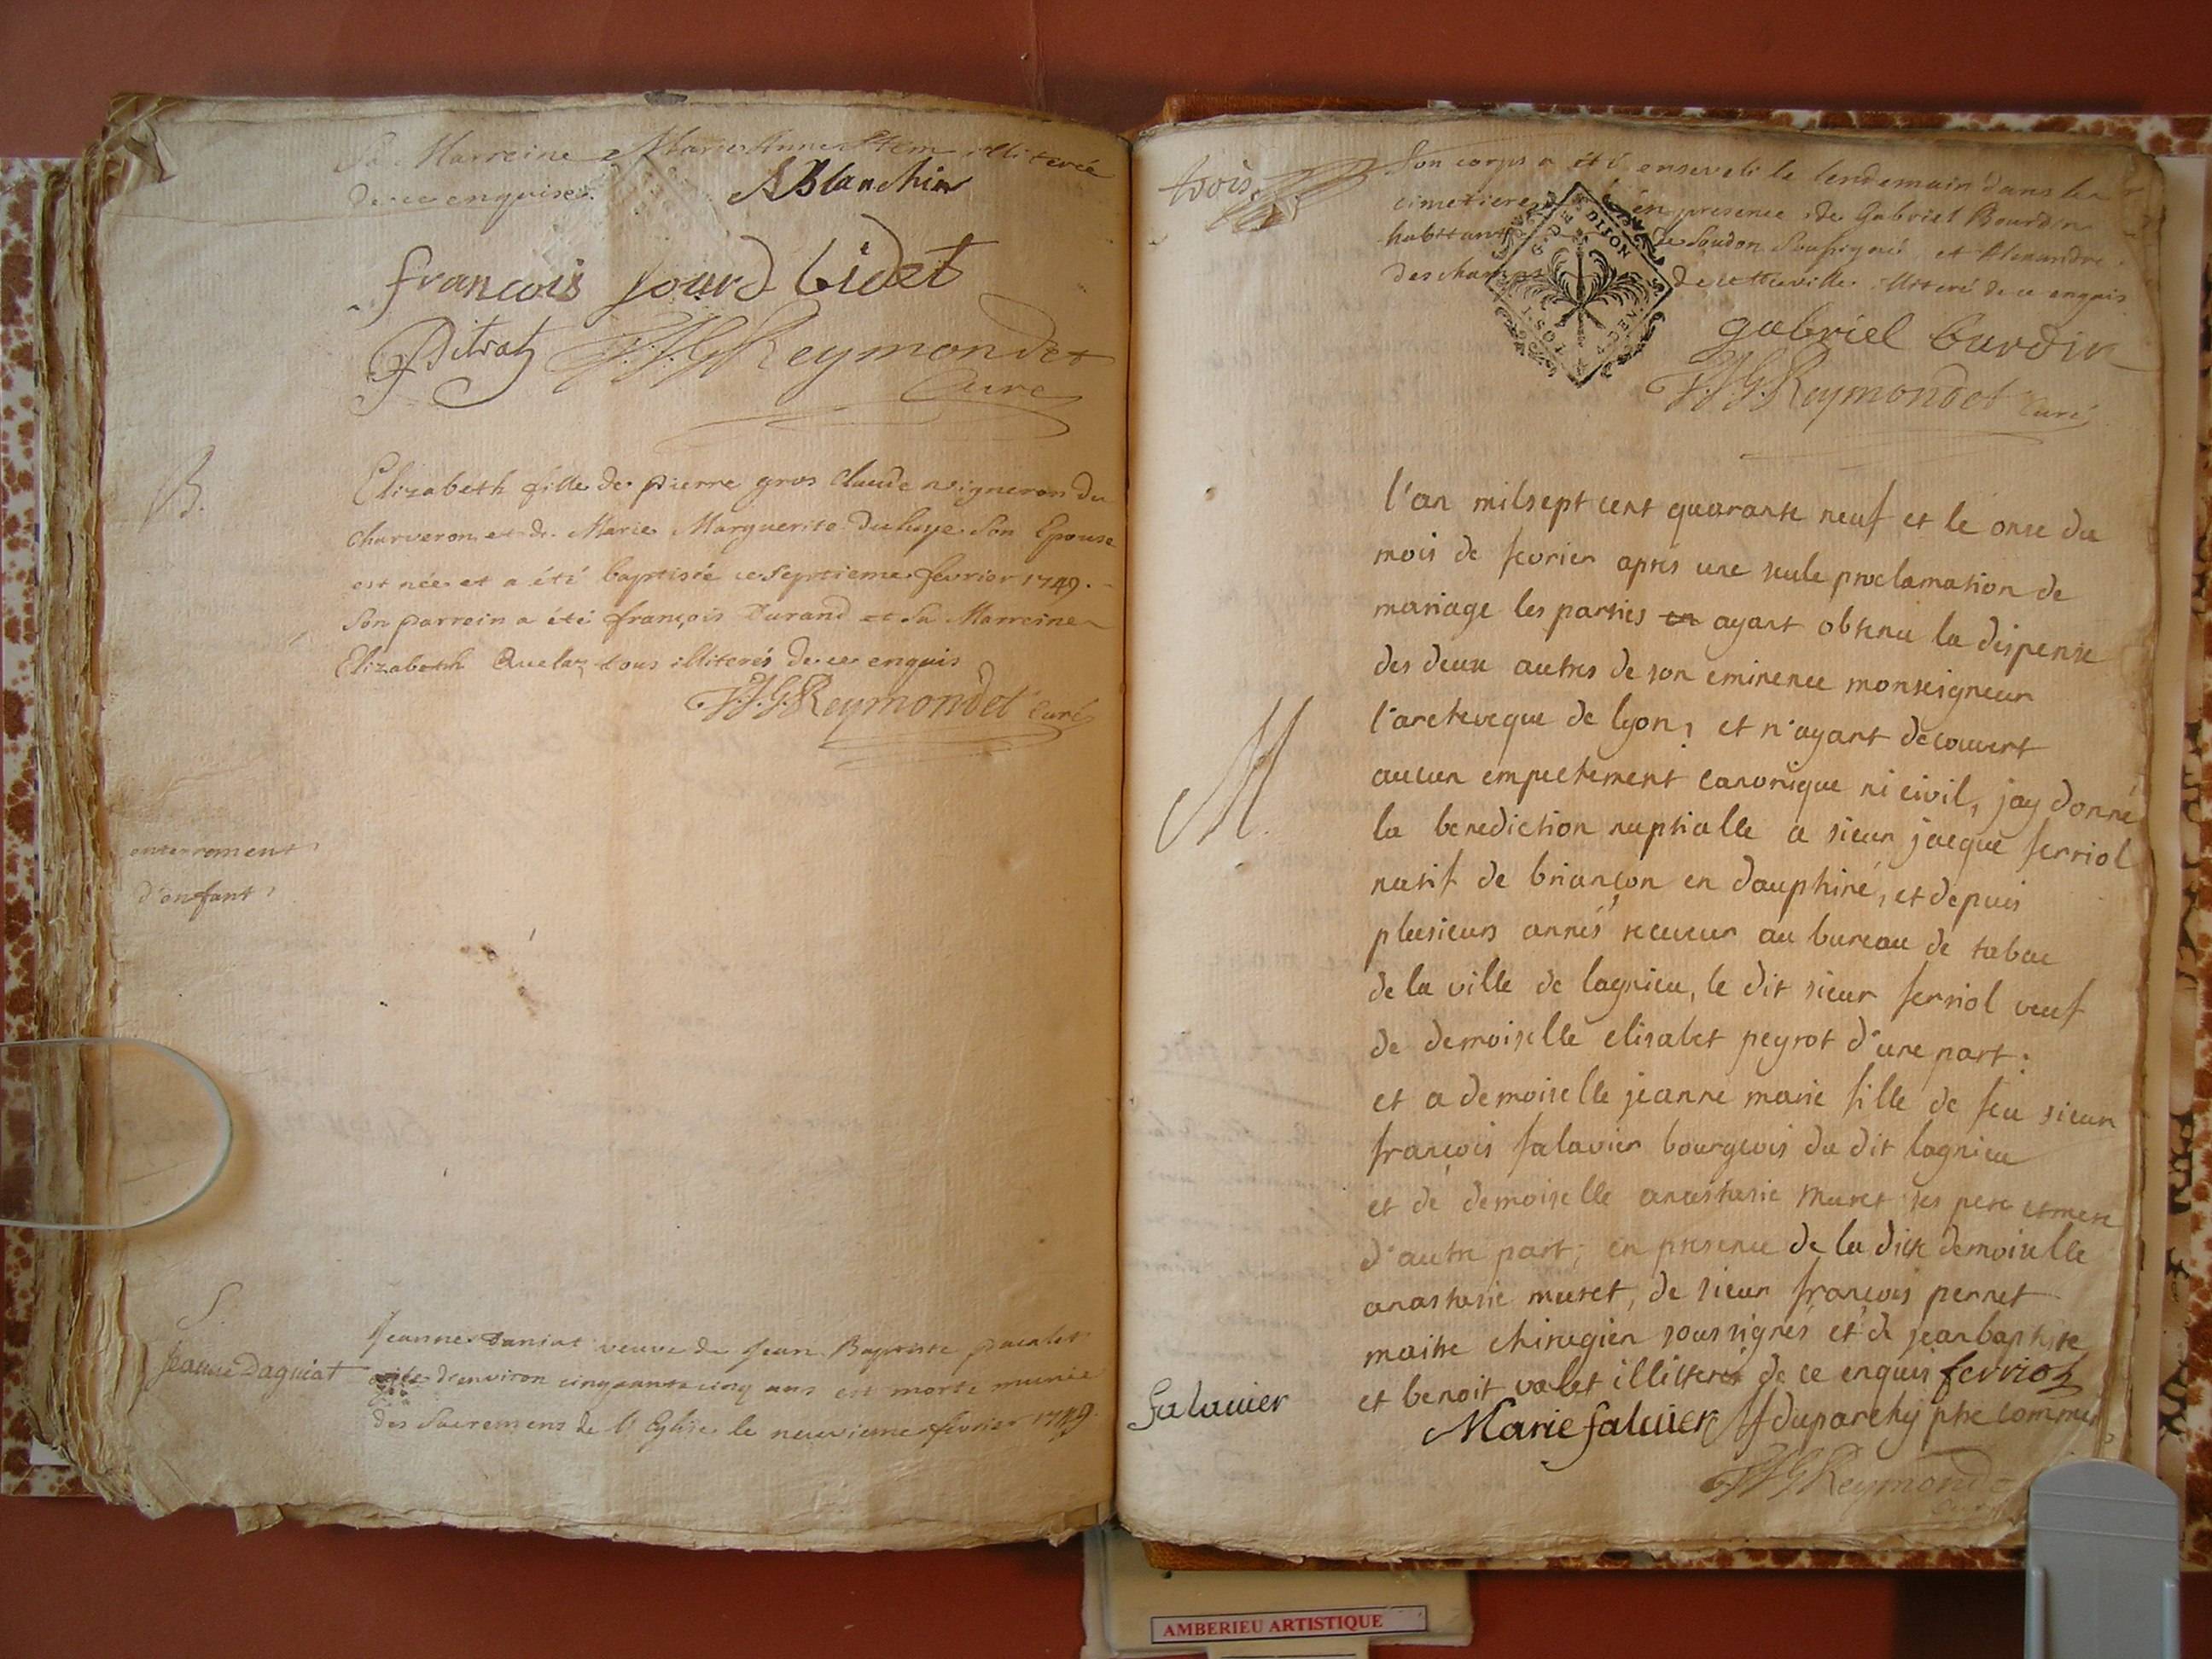 Sa Marreine Marie Anne Item illiterée
de ce enquise.
ABlanchin
françois jourd bidet
Pitrat J.J.G Reymondet
Curé
B.
Elizabeth fille de pierre gros Claude vigneron du
Charveron et de Marie Marguerite Son Epouse
est née et a été baptisée ce Septieme fevrier 1749.
Son parrein a été françois Durand et Sa Marreine
Elizabeth Quelaz tous illiterés de ce enquis
J.J.G Reymondet Curé
enterrement
d'enfant
S.
Jeanne Daguiat
Jeanne veuve de Jean Baptiste
agée d'environ cinquante cinq ans est morte munie
des Sacremens de l'Eglise le neuvieme fevrier 1749
trois
Son corps a été enseveli le lendemain dans le
cimetiere en presence de Gabriel Bourdin
habitant de Soudon Soussigné et Alexandre
deschamps de cette ville illiteré de ce enquis
G. DE DIJON
gabriel burdin
J.J.G Reymondet Curé
M.
l'an milsept cent quarante neuf et le onze du
mois de fevrier aprés une seule proclamation de
mariage les parties en ayant obtenu la dispense
des deux autres de son eminence monseigneur
l'archeveque de lyon, et n'ayant decouvert
aucun empechement canonique ni civil, jay donné
la benediction nuptialle a sieur jacque ferriol
natif de briançon en dauphiné, et depuis
plusieurs annés receveur au bureau de tabac
de la ville de lagnieu, le dit sieur ferriol veuf
de demoiselle elisabet peyrot d'une part.
et a demoiselle jeanne marie fille de feu sieur
françois falavier bourgeois du dit lagnieu
et de demoiselle anastasie muret ses pere et mere
d'autre part; en presence de la dite demoiselle
anastasie muret, de sieur françois pernet
maitre chirugien soussignés et de jean baptiste
et benoit valet illitterés de ce enquis ferriol
falauier
Marie falauier duparchy ptre commis
J.J.G Reymondet
Curé
AMBERIEU ARTISTIQUE